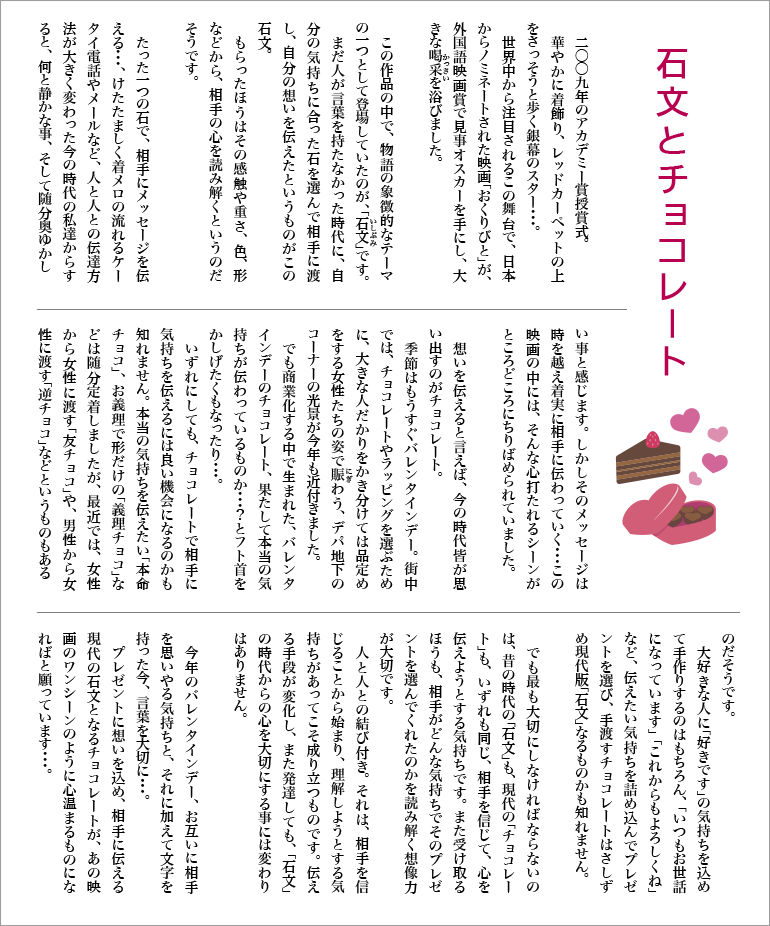 石文とチョコレート
二〇〇九年のアカデミー賞授賞式。
華やかに着飾り、レッドカーペットの上
をさっそうと歩く銀幕のスター・・・。
世界中から注目されるこの舞台で、日本
からノミネートされた映画「おくりびと」が、
外国語映画賞で見事オスカーを手にし、大
きな喝采を浴びました。
かっさい
この作品の中で、物語の象徴的なテーマ
の一つとして登場していたのが、「石文」です。
いしぶみ
まだ人が言葉を持たなかった時代に、自
分の気持ちに合った石を選んで相手に渡
し、自分の想いを伝えたというものがこの
石文。
もらったほうはその感触や重さ、色、形
などから、相手の心を読み解くというのだ
そうです。
たった一つの石で、相手にメッセージを伝
える・・・、けたたましく着メロの流れるケー
タイ電話やメールなど、人と人との伝達方
法が大きく変わった今の時代の私達からす
ると、何と静かな事、そして随分奥ゆかし
い事と感じます。しかしそのメッセージは
時を越え着実に相手に伝わっていく・・・この
映画の中には、そんな心打たれるシーンが
ところどころにちりばめられていました。
想いを伝えると言えば、今の時代皆が思
い出すのがチョコレート。
季節はもうすぐバレンタインデー。街中
では、チョコレートやラッピングを選ぶため
に、大きな人だかりをかき分けては品定め
をする女性たちの姿で賑わう、デパ地下の
にぎ
コーナーの光景が今年も近付きました。
でも商業化する中で生まれた、バレンタ
インデーのチョコレート、果たして本当の気
持ちが伝わっているものか・・・？とフト首を
かしげたくもなったり・・・。
いずれにしても、チョコレートで相手に
気持ちを伝えるには良い機会になるのかも
知れません。本当の気持ちを伝えたい「本命
チョコ」、お義理で形だけの「義理チョコ」な
どは随分定着しましたが、最近では、女性
から女性に渡す「友チョコ」や、男性から女
性に渡す「逆チョコ」などというものもある
のだそうです。
大好きな人に「好きです」の気持ちを込め
て手作りするのはもちろん、「いつもお世話
になっています」「これからもよろしくね」
など、伝えたい気持ちを詰め込んでプレゼ
ントを選び、手渡すチョコレートはさしず
め現代版「石文」なるものかも知れません。
でも最も大切にしなければならないの
は、昔の時代の「石文」も、現代の「チョコレー
ト」も、いずれも同じ、相手を信じて、心を
伝えようとする気持ちです。また受け取る
ほうも、相手がどんな気持ちでそのプレゼ
ントを選んでくれたのかを読み解く想像力
が大切です。
人と人との結び付き。それは、相手を信
じることから始まり、理解しようとする気
持ちがあってこそ成り立つものです。伝え
る手段が変化し、また発達しても、「石文」
の時代からの心を大切にする事には変わり
はありません。
今年のバレンタインデー、お互いに相手
を思いやる気持ちと、それに加えて文字を
持った今、言葉を大切に・・・。
プレゼントに想いを込め、相手に伝える
現代の石文となるチョコレートが、あの映
画のワンシーンのように心温まるものにな
ればと願っています・・・。